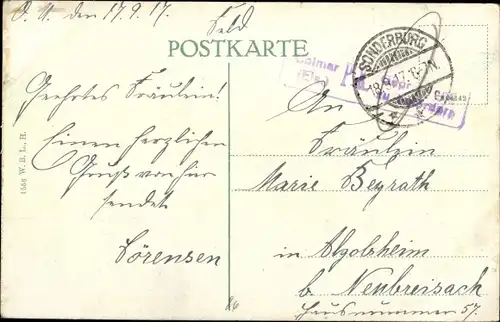 O. U. den 17.9.17.
Feld
POSTKARTE
SONDERBURG
18.9.17.
Colmar
(Els.)
Geehrtes Fräulein!
Einen herzlichen
Gruß von hier
sendet
Sörensen
An
Fräulein
Marie Beyrath
in Algolsheim
b. Neubreisach
Hausnummer 57.
1556 W. B. L. H.
26